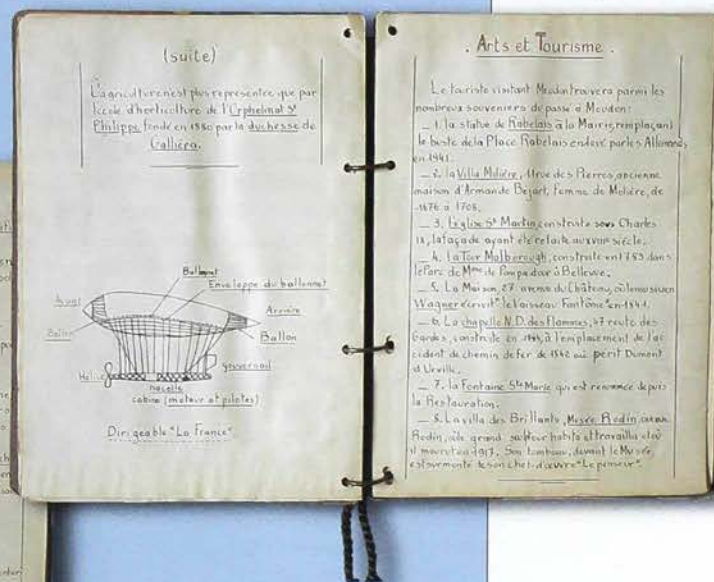 (suite)
L'agriculture n'est plus representée que par
l'école d'horticulture de l'Orphelinat St
Philippe fondé en 1880 par la duchesse de
Galliéra.
Ballonnet
Enveloppe du ballonnet
Avant
Arrière
Ballon
Ballon
gouvernail
Hélice
nacelle
cabine (moteur et pilotes)
Dirigeable "La France"
. Arts et Tourisme .
Le touriste visitant Meudon trouvera parmi les
nombreux souvenirs du passé à Meudon:
_ 1. la statue de Rabelais à la Mairie, remplaçant
le buste de la Place Rabelais enlevé par les Allemands
en 1941.
_ 2. la Villa Molière, 11 rue des Pierres, ancienne
maison d'Armande Béjart, femme de Molière, de
1676 à 1705.
_ 3. l'église St Martin, construite sous Charles
IX, la façade ayant été refaite au XVIII siècle.
_ 4. la Tour Malborough, construite en 1753 dans
le Parc de Mme de Pompadour à Bellevue.
_ 5. La Maison, 27 avenue du Château, où le musicien
Wagner écrivit "le Vaisseau Fantôme" en 1841.
_ 6. La chapelle N.D. des Flammes, 47 route des
Gardes, construite en à l'emplacement de l'ac
cident de chemin de fer de 1842 où périt Dumont
d'Urville.
_ 7. la Fontaine Ste Marie qui est renommée depuis
la Restauration.
_ 8. La villa des Brillants, Musée Rodin, où
Rodin, grand sculpteur habita et travailla et où
il mourut en 1917. Son tombeau, devant le Musée,
est surmonté de son chef-d'œuvre "Le penseur".